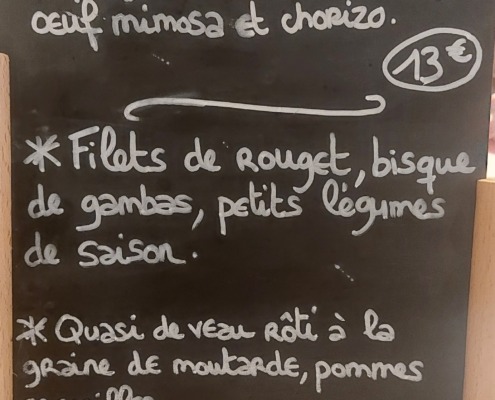 oeuf mimosa et chorizo.
13€
* Filets de Rouget, bisque
de gambas, petits légumes
de saison.
* Quasi de veau rôti à la
graine de moutarde, pommes